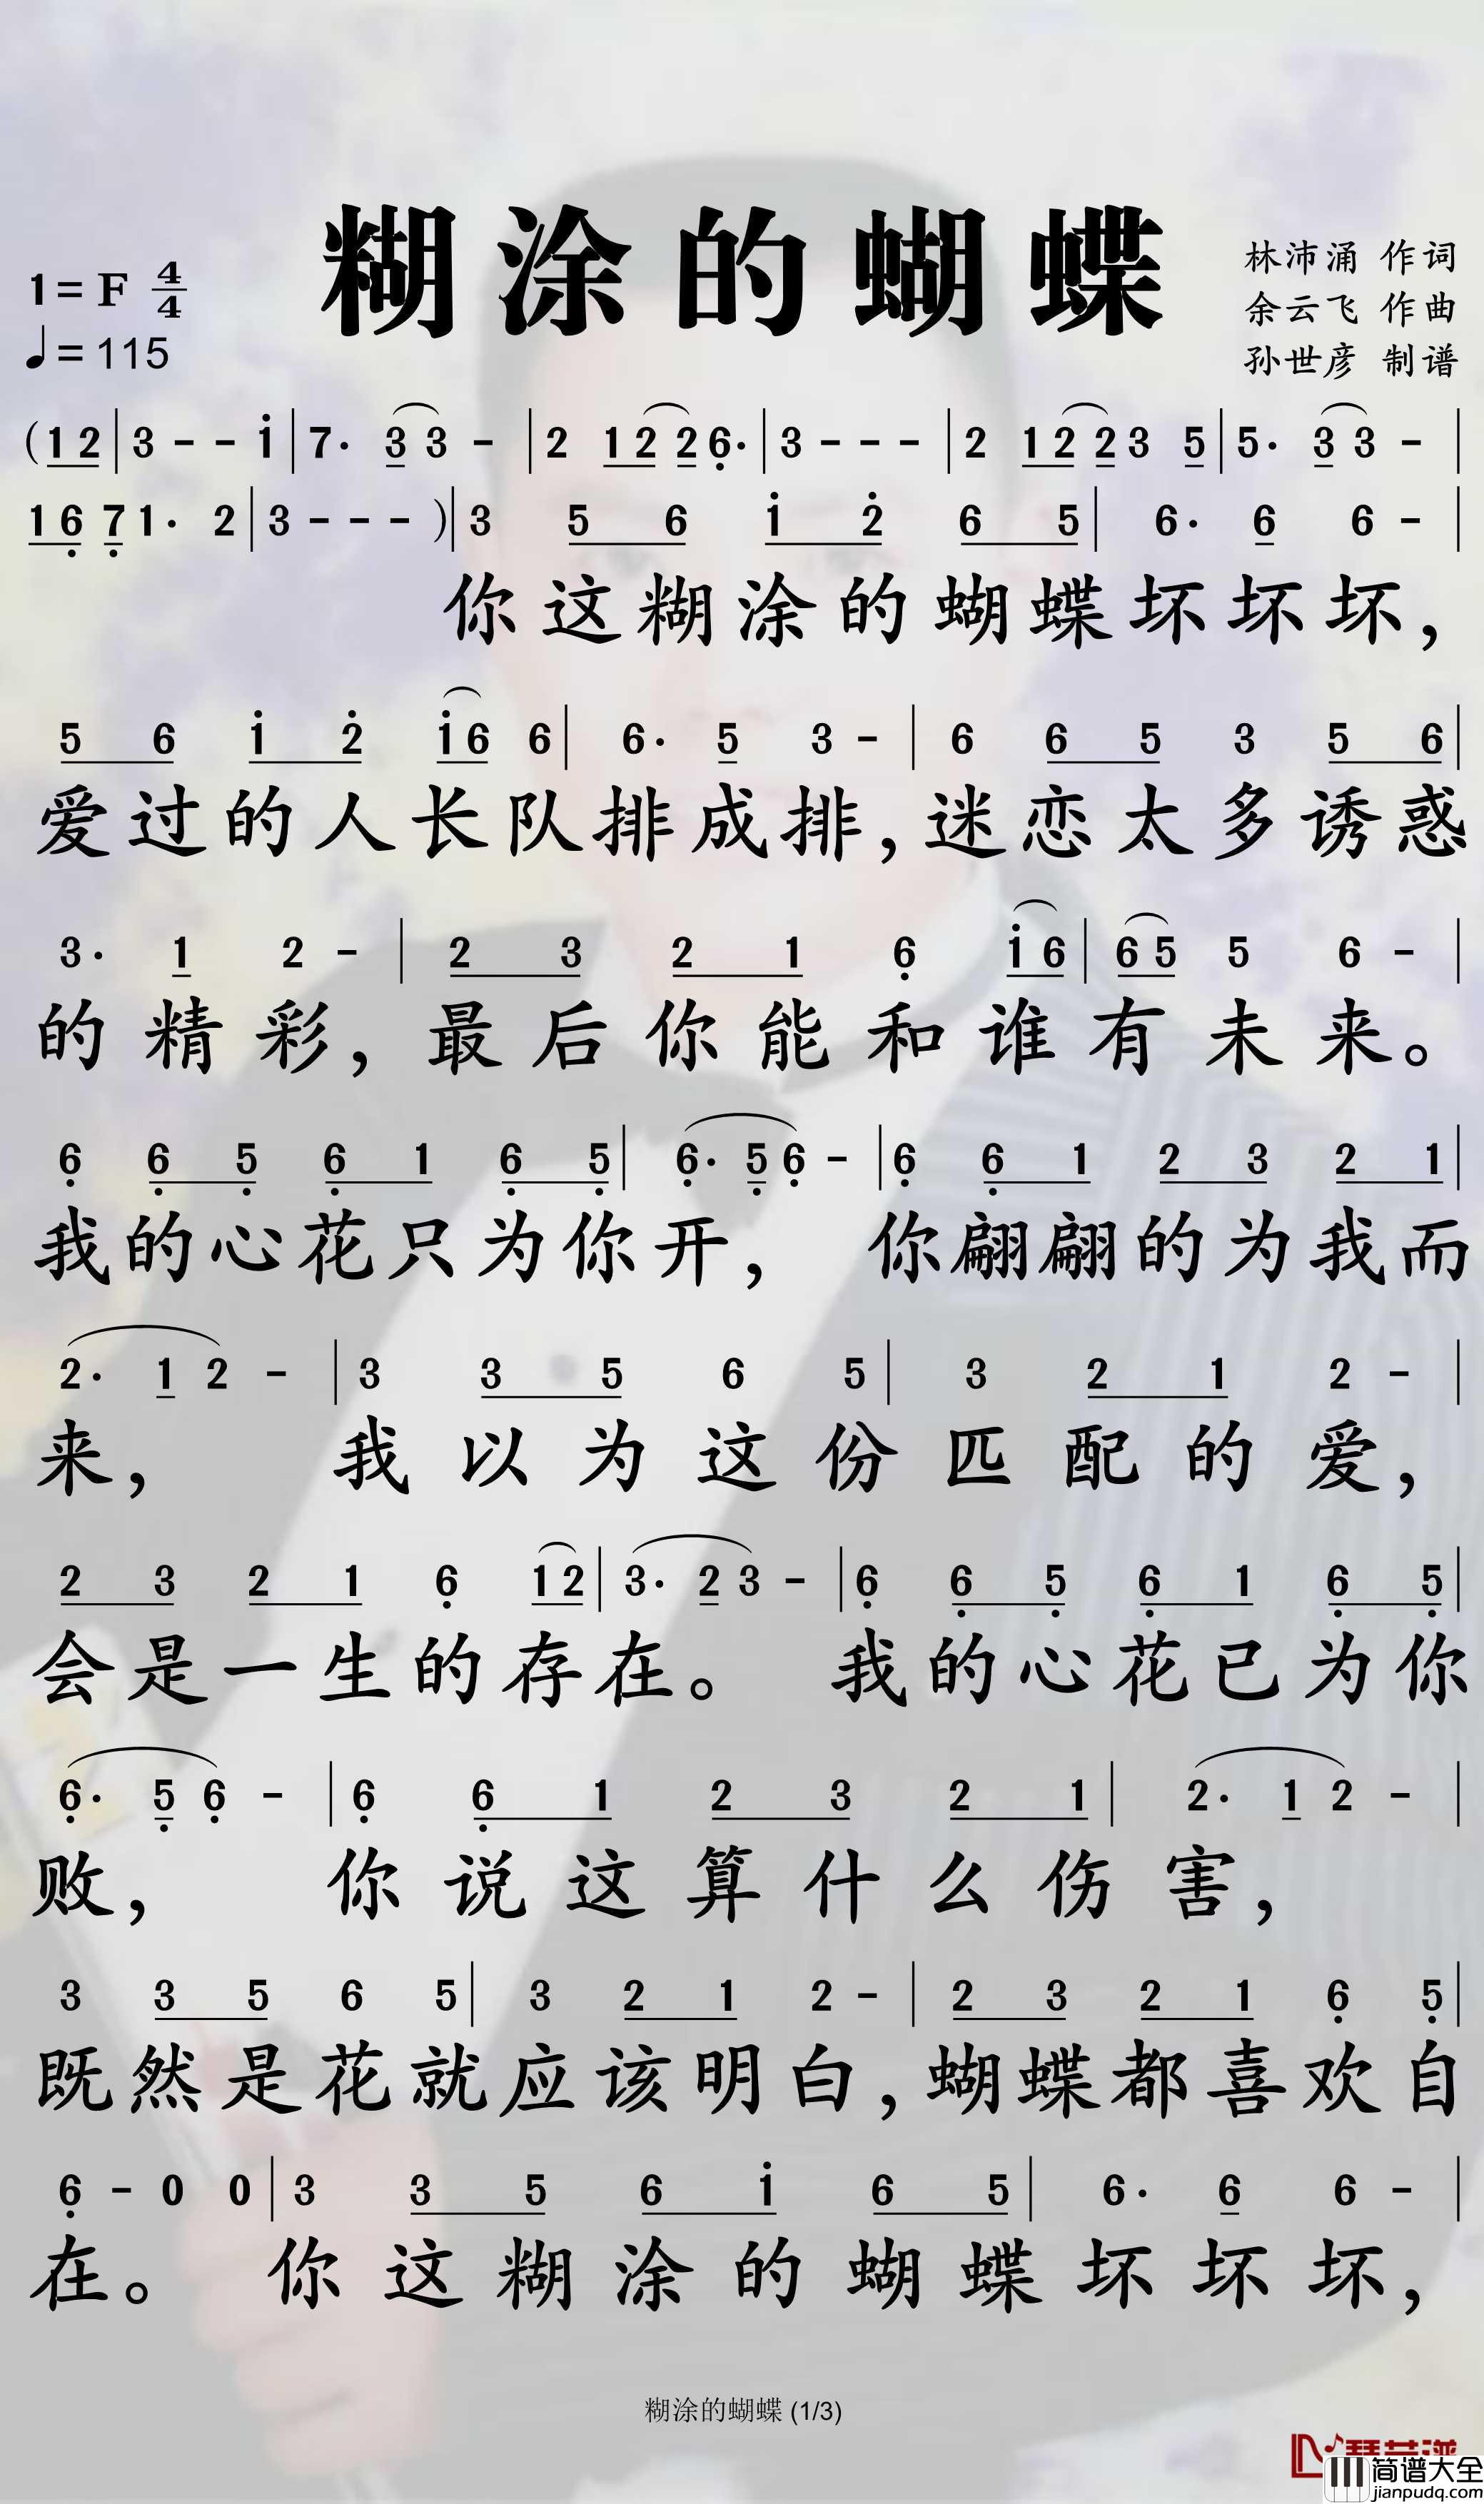 糊涂的蝴蝶
1=F 4/4
♩=115
林沛涌 作词
余云飞 作曲
孙世彦 制谱
(1 2 | 3 - - i | 7· 3 3 - | 2 1 2 2 6̣· | 3 - - - | 2 1 2 2 3 5 | 5· 3 3 - |
1 6̣ 7̣ 1· 2 | 3 - - - )| 3 5 6 i 2̇ 6 5 | 6· 6 6 - |
你这糊涂的蝴蝶坏坏坏，
5 6 i 2̇ i 6 6 | 6· 5 3 - | 6 6 5 3 5 6 |
爱过的人长队排成排，迷恋太多诱惑
3· 1 2 - | 2 3 2 1 6̣ i 6 | 6 5 5 6 - |
的精彩，最后你能和谁有未来。
6̣ 6̣ 5̣ 6̣ 1 6̣ 5̣ | 6̣· 5̣ 6̣ - | 6̣ 6̣ 1 2 3 2 1 |
我的心花只为你开，你翩翩的为我而
2· 1 2 - | 3 3 5 6 5 | 3 2 1 2 - |
来，我以为这份匹配的爱，
2 3 2 1 6̣ 1 2 | 3· 2 3 - | 6̣ 6̣ 5̣ 6̣ 1 6̣ 5̣ |
会是一生的存在。我的心花已为你
6̣· 5̣ 6̣ - | 6̣ 6̣ 1 2 3 2 1 | 2· 1 2 - |
败，你说这算什么伤害，
3 3 5 6 5 | 3 2 1 2 - | 2 3 2 1 6̣ 5̣ |
既然是花就应该明白，蝴蝶都喜欢自
6̣ - 0 0 | 3 3 5 6 i 6 5 | 6· 6 6 - |
在。你这糊涂的蝴蝶坏坏坏，
糊涂的蝴蝶 (1/3)
简谱大全
jianpudq.com